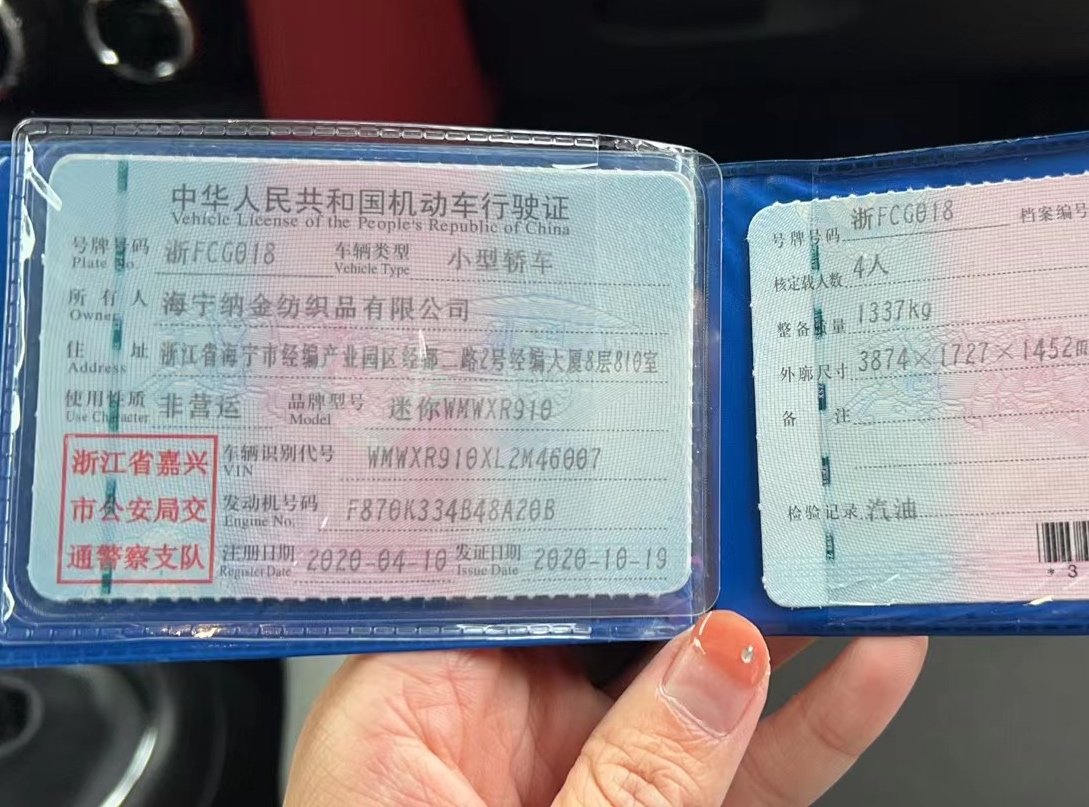 中华人民共和国机动车行驶证
Vehicle License of the People's Republic of China
号牌号码 浙FCG018 车辆类型 小型轿车
Plate No. Vehicle Type
所有人 海宁纳金纺织品有限公司
Owner
住址 浙江省海宁市经编产业园区经都二路2号经编大厦8层810室
Address
使用性质 非营运 品牌型号 迷你WMWXR910
Use Character Model
浙江省嘉兴
市公安局交
通警察支队
车辆识别代号 WMWXR910XL2M46007
VIN
发动机号码 F870K334B48A20B
Engine No.
注册日期 2020-04-10 发证日期 2020-10-19
Register Date Issue Date
号牌号码 浙FCG018 档案编号
核定载人数 4人
整备质量 1337kg
外廓尺寸 3874×1727×1452
备注
检验记录 汽油
* 3